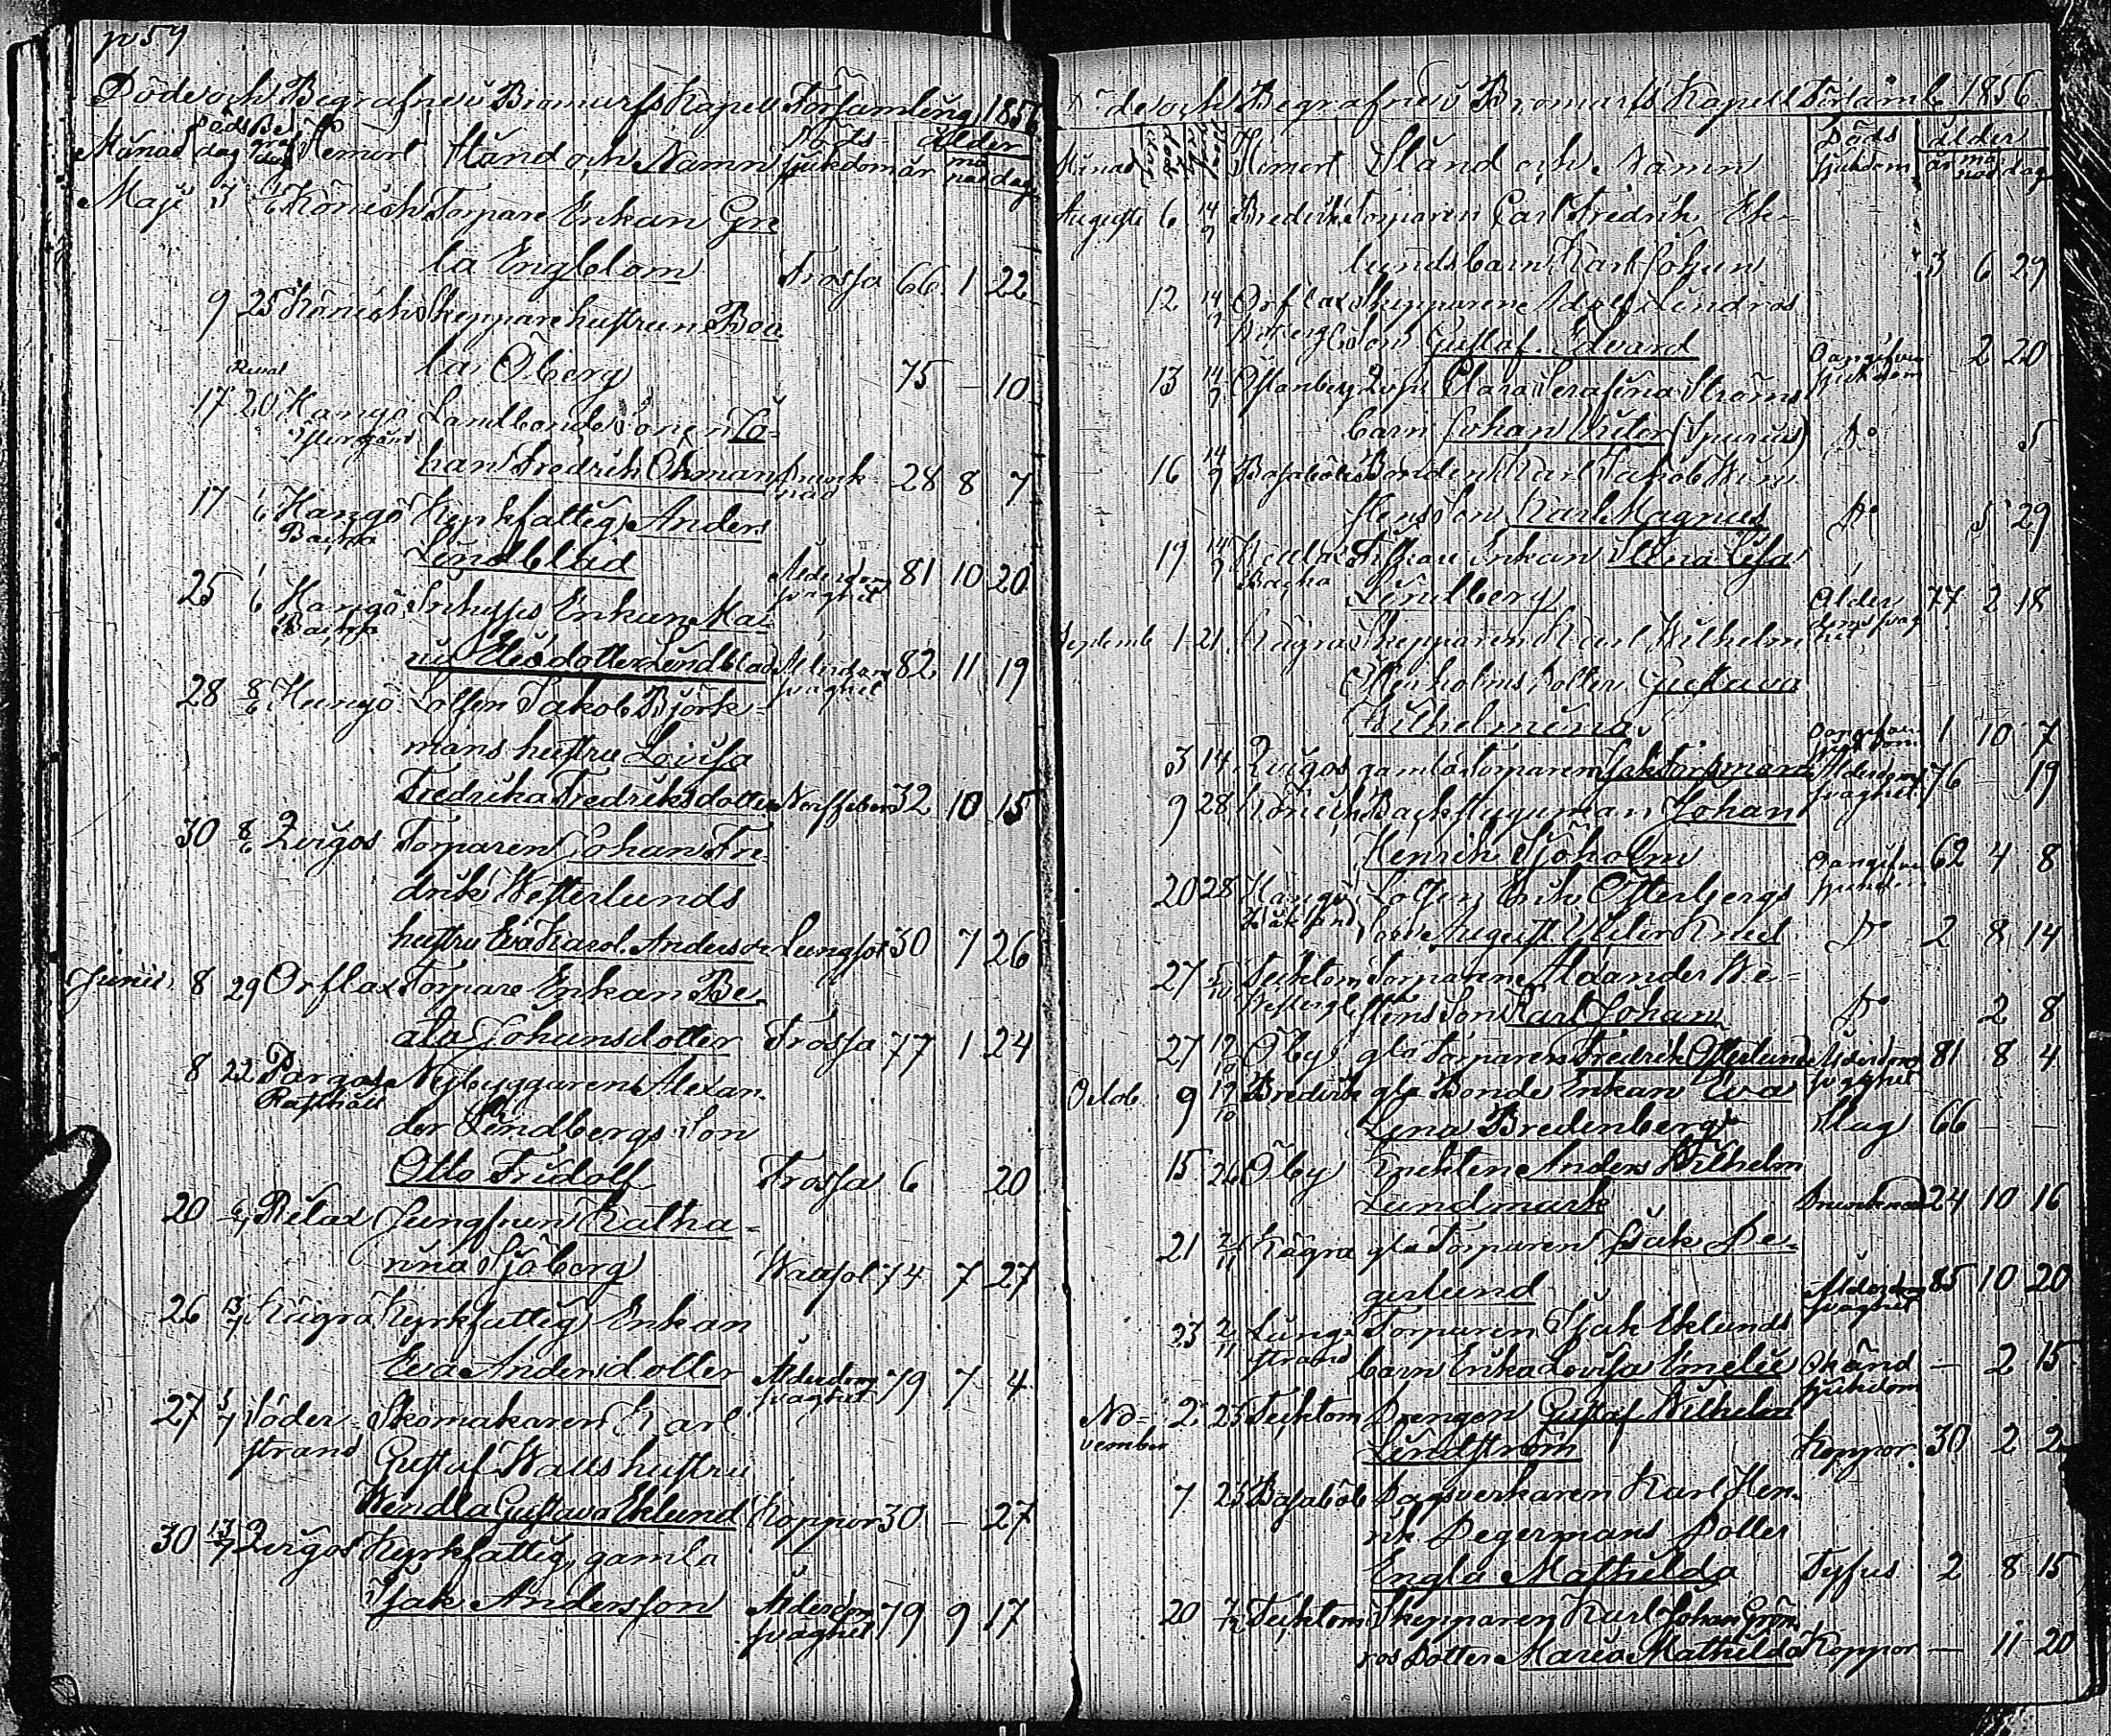 p 59
Döde och Begrafne i Bromarfs Kapell Församling 1856
Månad Döds dag Begraf dag Hemort Stånd och Namn Döds sjukdom Ålder år månad dag
Maji 1/6 Könich Torpare Enkan Gre
ta Engblom Frossa 66 1 22
9 25 Könichs Skepparehustrun Bea
ta Öberg 75 – 10
17 20 Hangö Landbonde Sonen Jo-
han Fredrik Öhman Drunk
nad 28 8 7
17 1/6 Hangö Kyrkfattig Anders
Lindblad Ålderdoms
svaghet 81 10 20
25 1/6 Hangö Enkan Ma-
Lindblad Ålderdoms
svaghet 82 11 19
28 8/6 Hangö Lotsen Jakob Björk-
mans hustru Lovisa
Fredrika Fredriksdotter 32 10 15
30 8/6 Zvigos Torparen Johan Fre
drik Westerlunds
hustru Eva Karol. Andersdr Lungsot 30 7 26
Junii 8 29 Orflax Torpare Enkan Be
ata Johansdotter Frossa 77 1 24
8 22 Pargas Nybyggaren Alexan-
der Lindbergs Son
Otto Fridolf Frossa 6 – 20
20 6/7 Rilax Jungfrun Katha-
rina Sjöberg 74 7 27
26 13/7 Kägra Kyrkfattig Enkan
Eva Andersdotter Ålderdoms
svaghet 79 7 4
27 Söder-
strand Skomakaren Karl
Gustaf Walls hustru
Wendla Gustava Eklund Koppor 30 – 27
30 13/7 Zvigos Kyrkfattig, gamla
Isak Andersson Ålderdoms
svaghet 79 9 17
Döde och Begrafne i Bromarfs Kapell Församl 1856
Månad Hemort Stånd och Namn Döds sjukdom ålder år månad dagar
Augusti 6 14/9 Bredvik Torparen Carl Fredrik Ek-
lunds barn Karl Johan 3 6 29
12 14/9 Orflax Skepparen Adolf Lindros
son Gustaf Edvard Oangifven
sjukdom 2 20
13 14/9 Östanberg Clara Serafina Ströms
barn Johan Viktor (Spurius) Do 5
16 14/9 Basaböle Bonden Karl Jakob Wim
stens son Karl Magnus Do 5 29
19 14/9 Enkan Stina Lisa
Lindberg Ålder
doms svag
het 77 2 18
Septemb 1 21 Kägra Skepparen Karl Wilhelm
dotter Gustava
Wilhelmina Oangifven
sjukdom 1 10 7
3 14 Zvigos gamla Torparen Isak Forsman Ålderdoms
svaghet 76 – 19
9 28 Könich Backstuguman Johan
Henrik Sjöholm Oangifven 62 4 8
20 28 Hangö Lotsen Erik Österbergs
son August Viktor Knut Do 2 8 14
27 5/10 Täcktom Torparen Alexander We-
stens son Karl Johan Do 2 8
27 12/10 Öby gla Torparen Fredrik Österlund Ålderdoms
svaghet 81 8 4
Octob. 9 19/10 Bredvik gla Bonde Enkan Eva
Lena Bredenberg Slag 66 – –
15 26 Öby Knekten Anders Wilhelm
Landmark Drunknad 24 10 16
21 2/11 Kägra gla Torparen Isak De-
gerlund Ålderdoms
svaghet 85 10 20
23 2/11 Lång-
strand Torparen Isak Eklunds
barn Erika Lovisa Emelie Okänd
sjukdom – 2 15
No-
vember 2 23 Täcktom Drengen Gustaf Wilhelm
Lindström Koppor 30 2 2
7 23 Basaböle Dagsverkaren Karl Hen-
rik Degermans Dotter
Engla Mathilda Tyfus 2 8 15
20 Täcktom Skepparen Karl Johan Grön
ros Dotter Maria Mathilda Koppor – 11 20